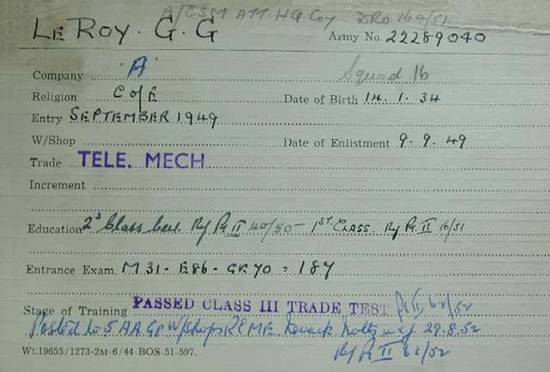 A/CSM ATT. HQ Coy DRO 164/51
LE ROY. G. G Army No. 22289040
Company "A" Squad 16
Religion C of E Date of Birth 14. 1. 34
Entry SEPTEMBER 1949
W/Shop Date of Enlistment 9. 9. 49
Trade TELE. MECH
Increment
Education 2d Class Cert. Pt II 40/50 - 1ST CLASS. Pt II 16/51
Entrance Exam. M.31 - E86 - GK 70 = 187
Stage of Training PASSED CLASS III TRADE TEST Pt II 62/52
Posted to 5 AA Gp W/Shops REME Newark Notts wef 29.8.52
Pt II 62/52
Wt.19655/1273-2M-6/44-BOS-51-597.